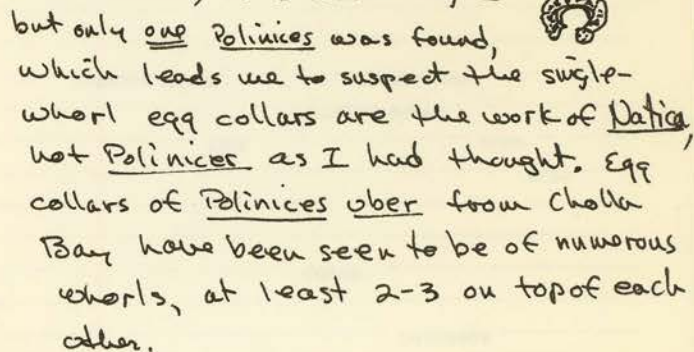 but only one Polinices was found,
which leads me to suspect the single-
whorl egg collars are the work of Natica,
not Polinices as I had thought. Egg
collars of Polinices uber from Cholla
Bay have been seen to be of numerous
whorls, at least 2-3 on top of each
other.